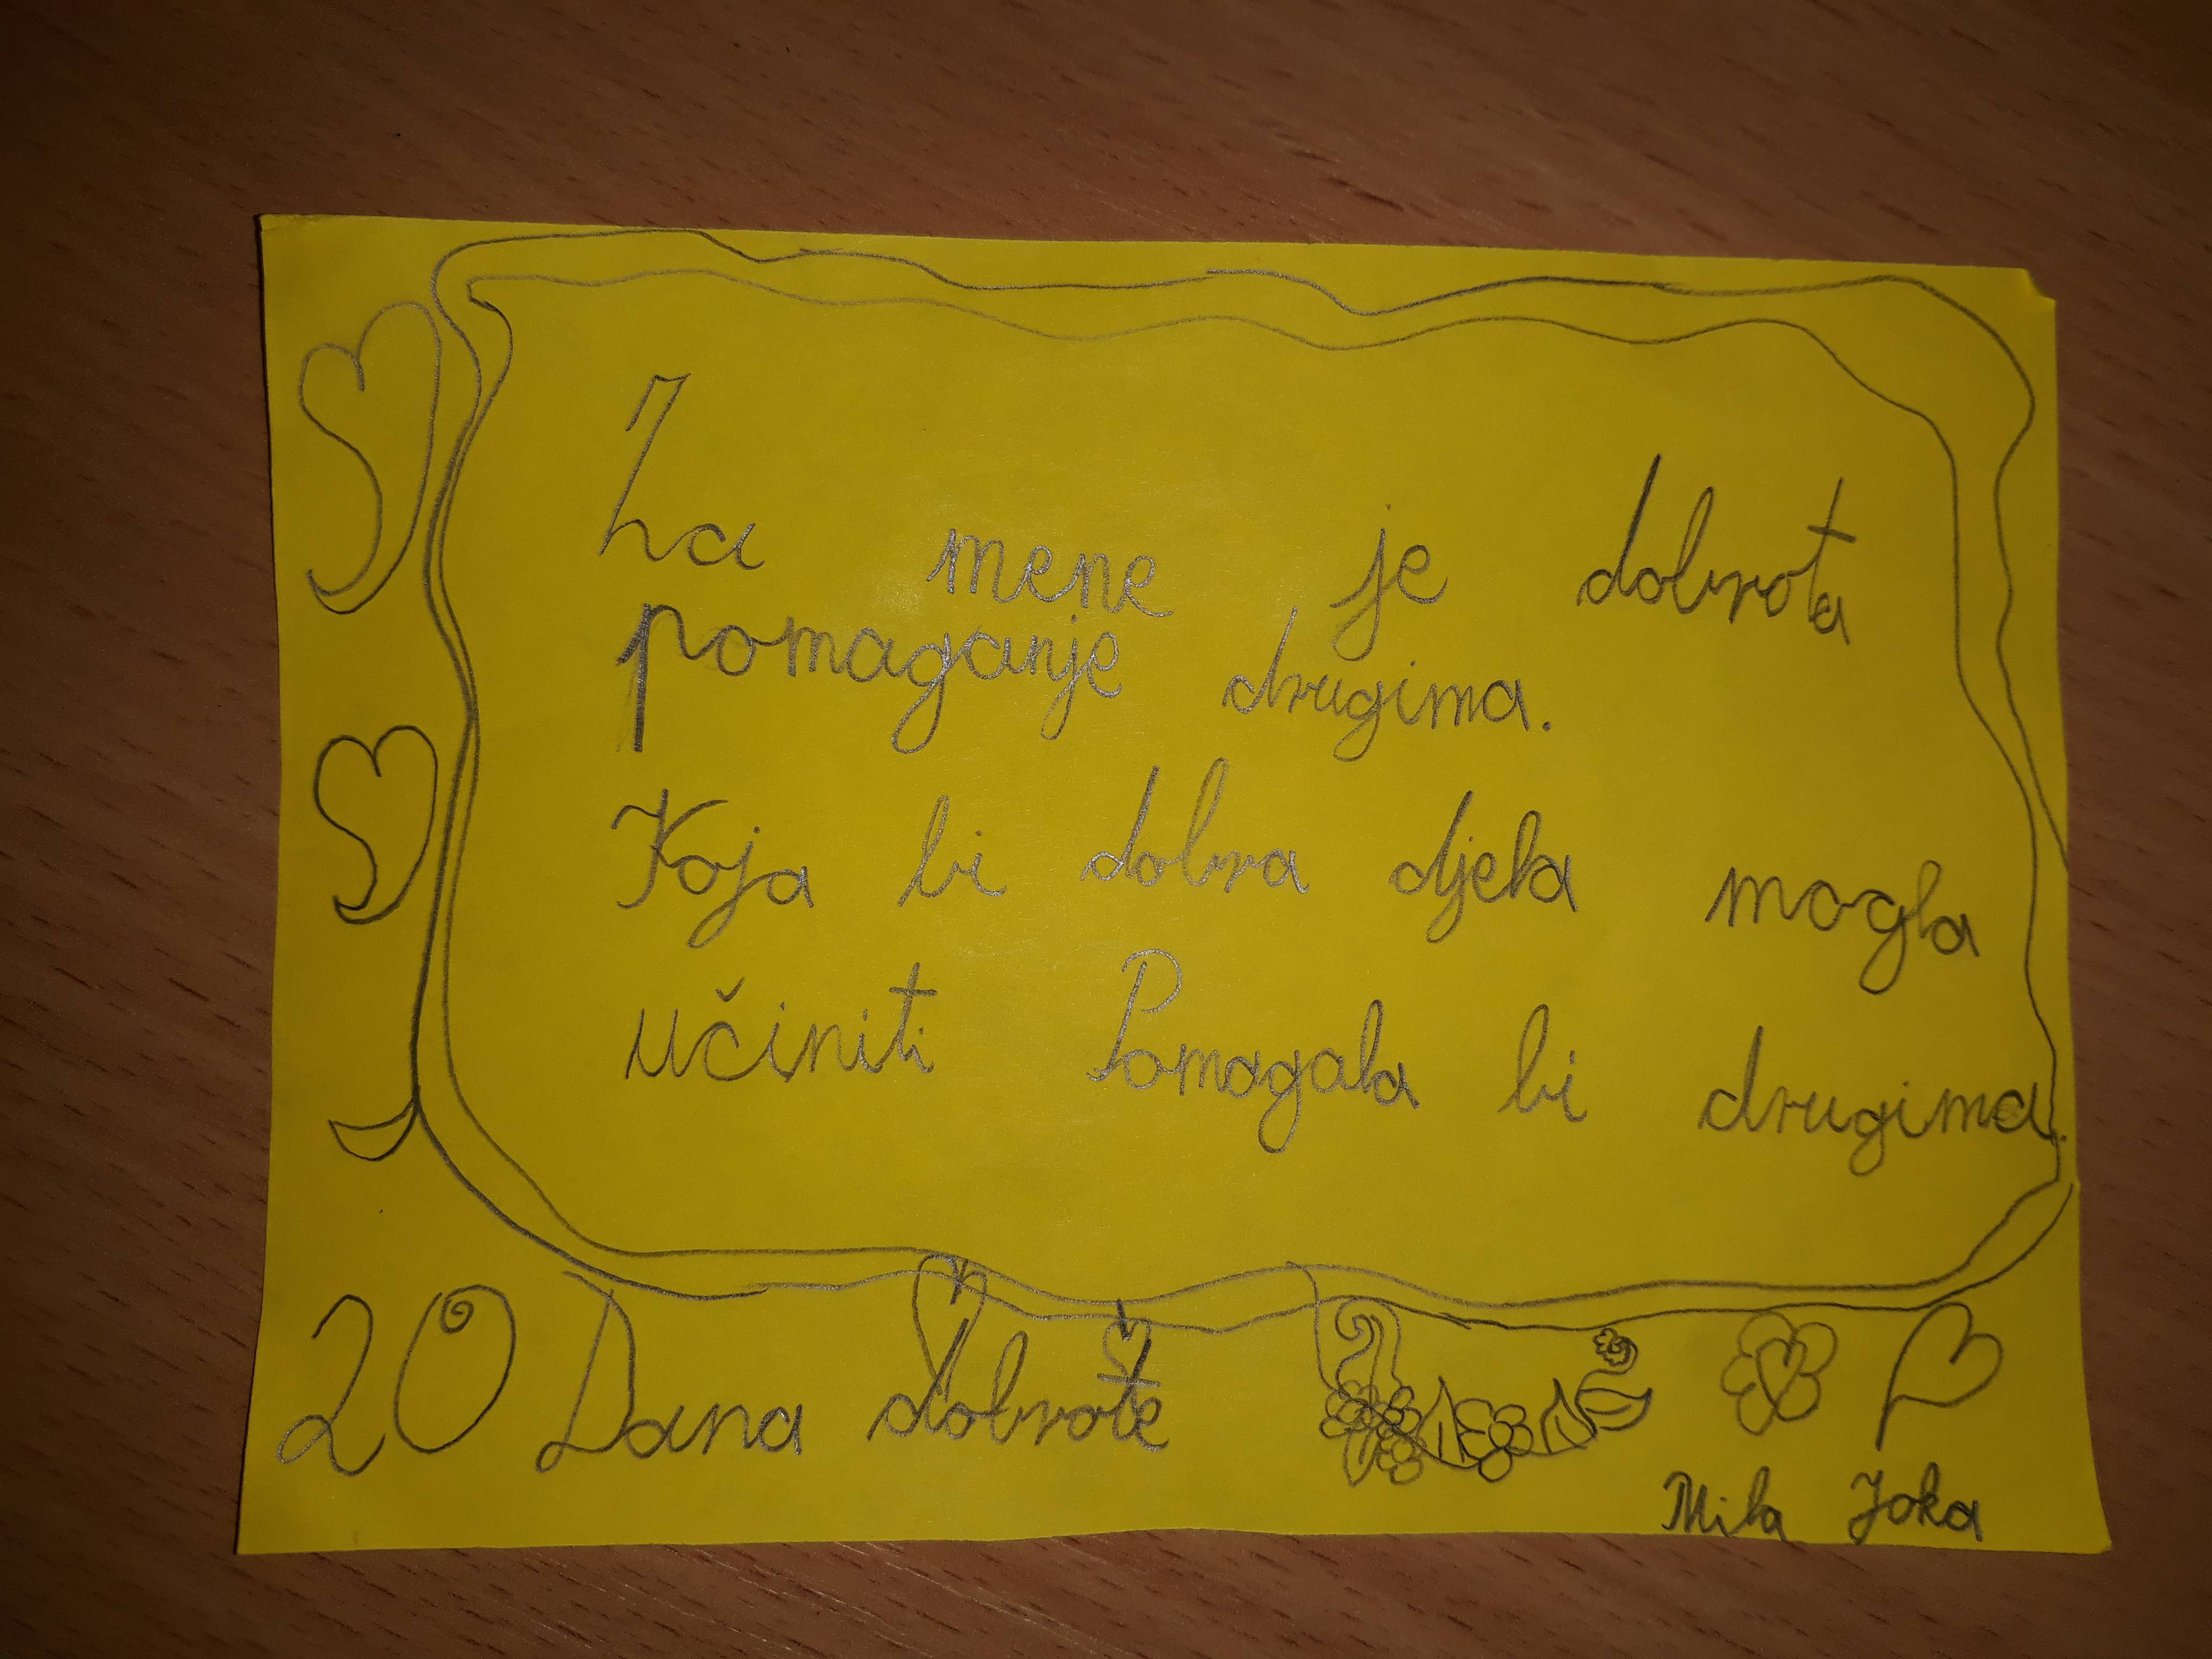 Za mene je dobrota
pomaganje drugima.
Koja bi dobra djela mogla
učiniti Pomagala bi drugima.
20 Dana dobrote
Mila Joka